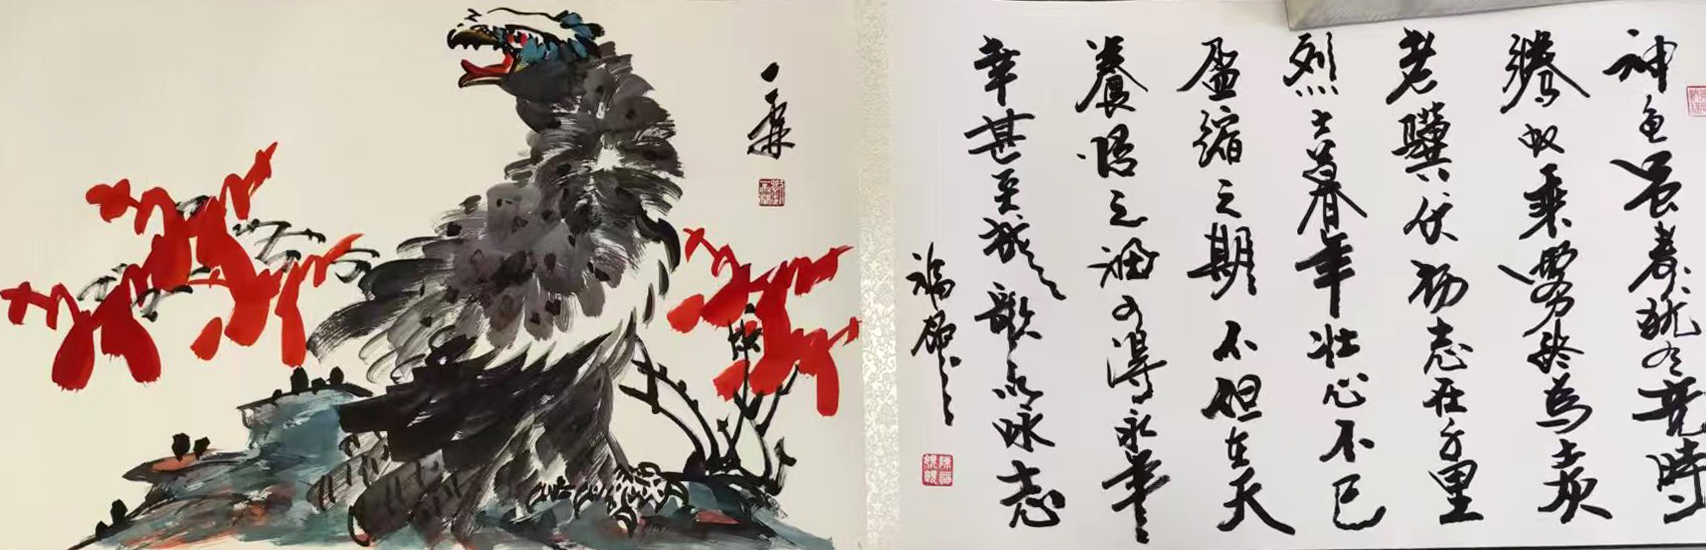 神龟虽寿猶有竟時
騰蛇乘雾终為土灰
老驥伏枥志在千里
烈士暮年壮心不已
盈缩之期不但在天
養怡之福可得永年
幸甚至哉歌以咏志
一霖